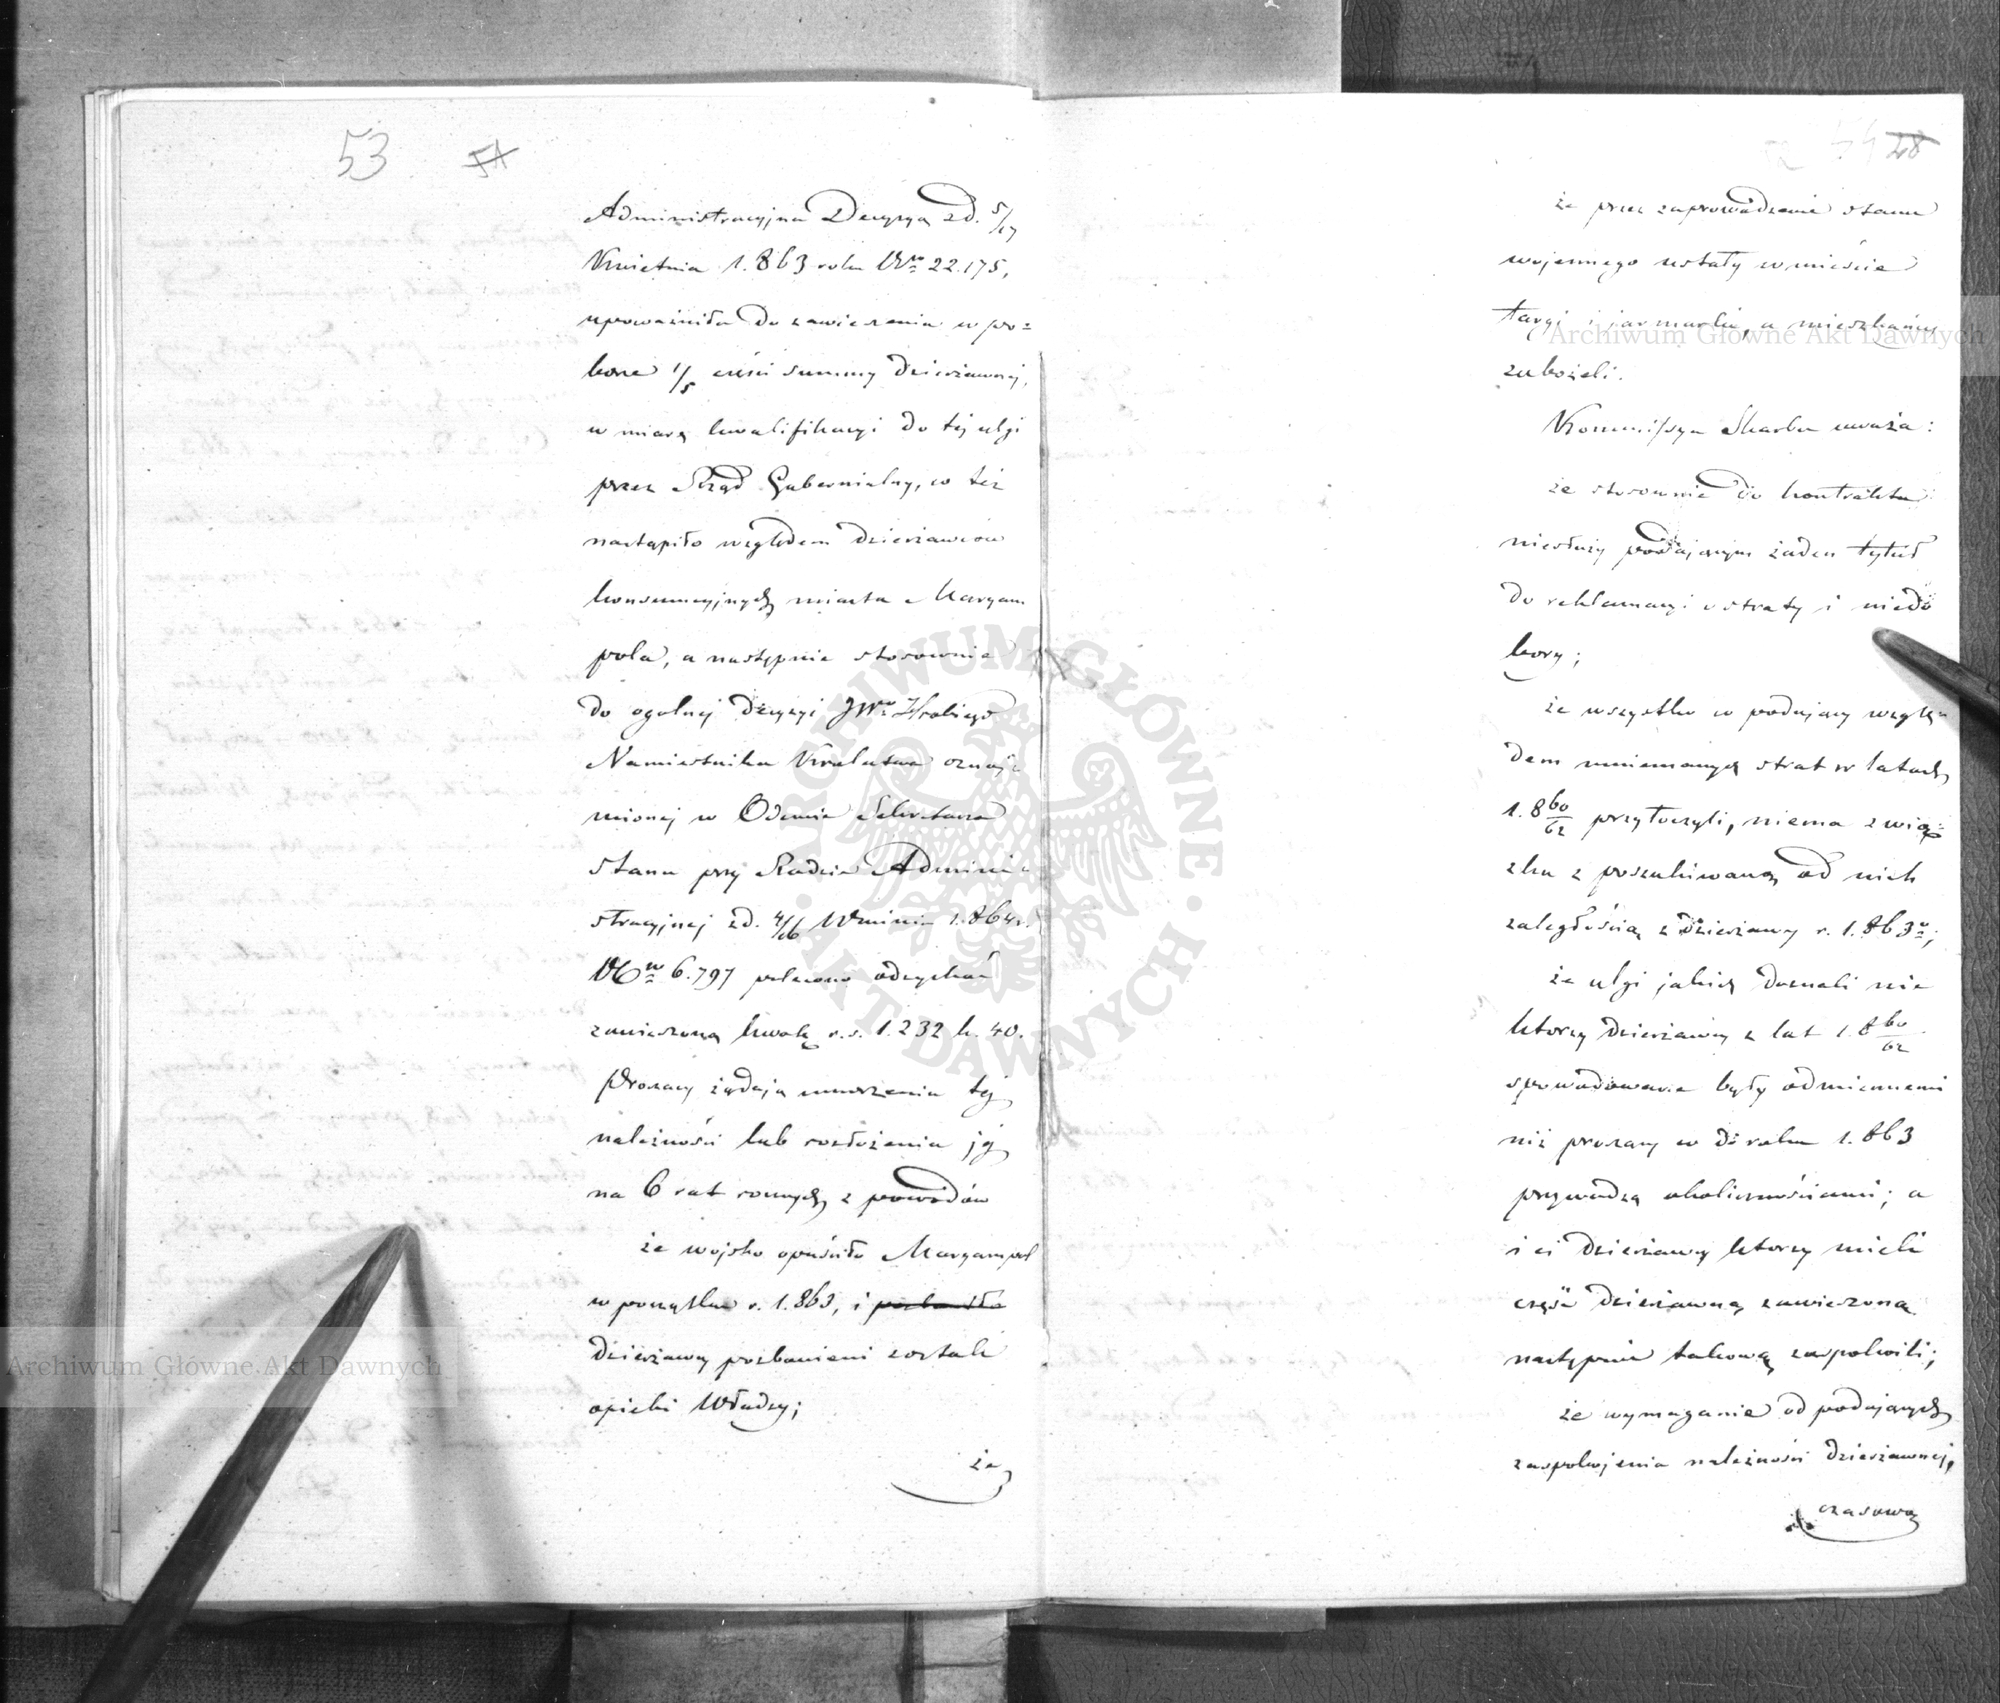 53 51
Administracyjna Decyzyą z d. 5/17
Kwietnia 1.863 roku Nro 22.175,
upoważniła do zawieszenia w po-
borze 1/5 części summy dzierżawnej,
w miarę kwalifikacyi do tej ulgi
przez Rząd Gubernialny, co też
nastąpiło względem dzierżawców
konsumcyjnych miasta Maryam
pola, a następnie stosownie
do ogolnej decyzyi JWo Hrabiego
Namiestnika Królestwa oznaj-
mionej w Odezwie Sekretarza
Stanu przy Radzie Admini-
stracyjnej z d. 4/16 1.864 r.
Nro 6.797 polecono odzyskać
zawieszoną kwotę r.s. 1.232 k. 40.
Proszący żądają umorzenia tej
należności lub rozłożenia jej
na 6 rat rocznych z powodów
że wojsko opuściło Maryampol
w początku r. 1.863, i
dzierżawcy pozbawieni zostali
opieki Władzy;
że
48
że przez zaprowadzenie stanu
wojennego ustały w mieście
targi i jarmarki, a mieszkańcy
zubożeli.
Kommissya Skarbu uważa:
że stosownie do kontraktu
niesłuży podającym żaden tytuł
do reklamacyi o straty i niedo
bory;
że wszystko co podający wzglę-
dem mniemanych strat w latach
1.860/62 przytoczyli, niema zwią-
zku z poszukiwaną od nich
zaległością z dzierżawy r. 1.863o;
że ulgi jakich doznali nie
którzy dzierżawcy z lat 1.860/62
spowodowane były odmiennemi
niż proszący w dz roku 1.863
przywodzą okolicznościami; a
i ci dzierżawcy którzy mieli
część dzierżawną zawieszoną
następnie takową zaspokoili;
że wymaganie od podających
zaspokojenia należności dzierżawnej,
czasowo
Archiwum Główne Akt Dawnych
Archiwum Główne Akt Dawnych
ARCHIWUM GŁÓWNE
AKT DAWNYCH